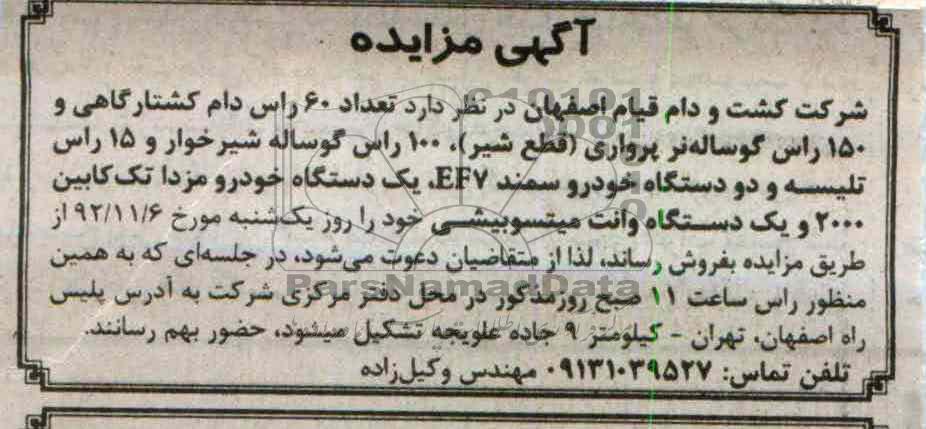 آگهی مزایده
شرکت کشت و دام قیام اصفهان در نظر دارد تعداد ۶۰ راس دام کشتارگاهی و
۱۵۰ راس گوساله‌نر پرواری (قطع شیر)، ۱۰۰ راس گوساله شیرخوار و ۱۵ راس
تلیسه و دو دستگاه خودرو سمند EF۷، یک دستگاه خودرو مزدا تک‌کابین
۲۰۰۰ و یک دستگاه وانت میتسوبیشی خود را روز یک‌شنبه مورخ ۹۲/۱۱/۶ از
طریق مزایده بفروش رساند، لذا از متقاضیان دعوت می‌شود، در جلسه‌ای که به همین
منظور راس ساعت ۱۱ صبح روزمذکور در محل دفتر مرکزی شرکت به آدرس پلیس
راه اصفهان، تهران - کیلومتر ۹ جاده علویجه تشکیل میشود، حضور بهم رسانند.
تلفن تماس: ۰۹۱۳۱۰۳۹۵۲۷ مهندس وکیل‌زاده
ParsNamadData